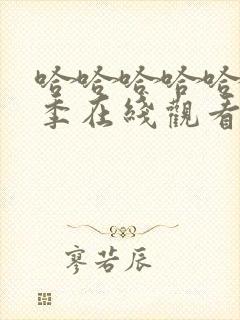 哈哈哈哈哈
季在綫觀看
寥若辰